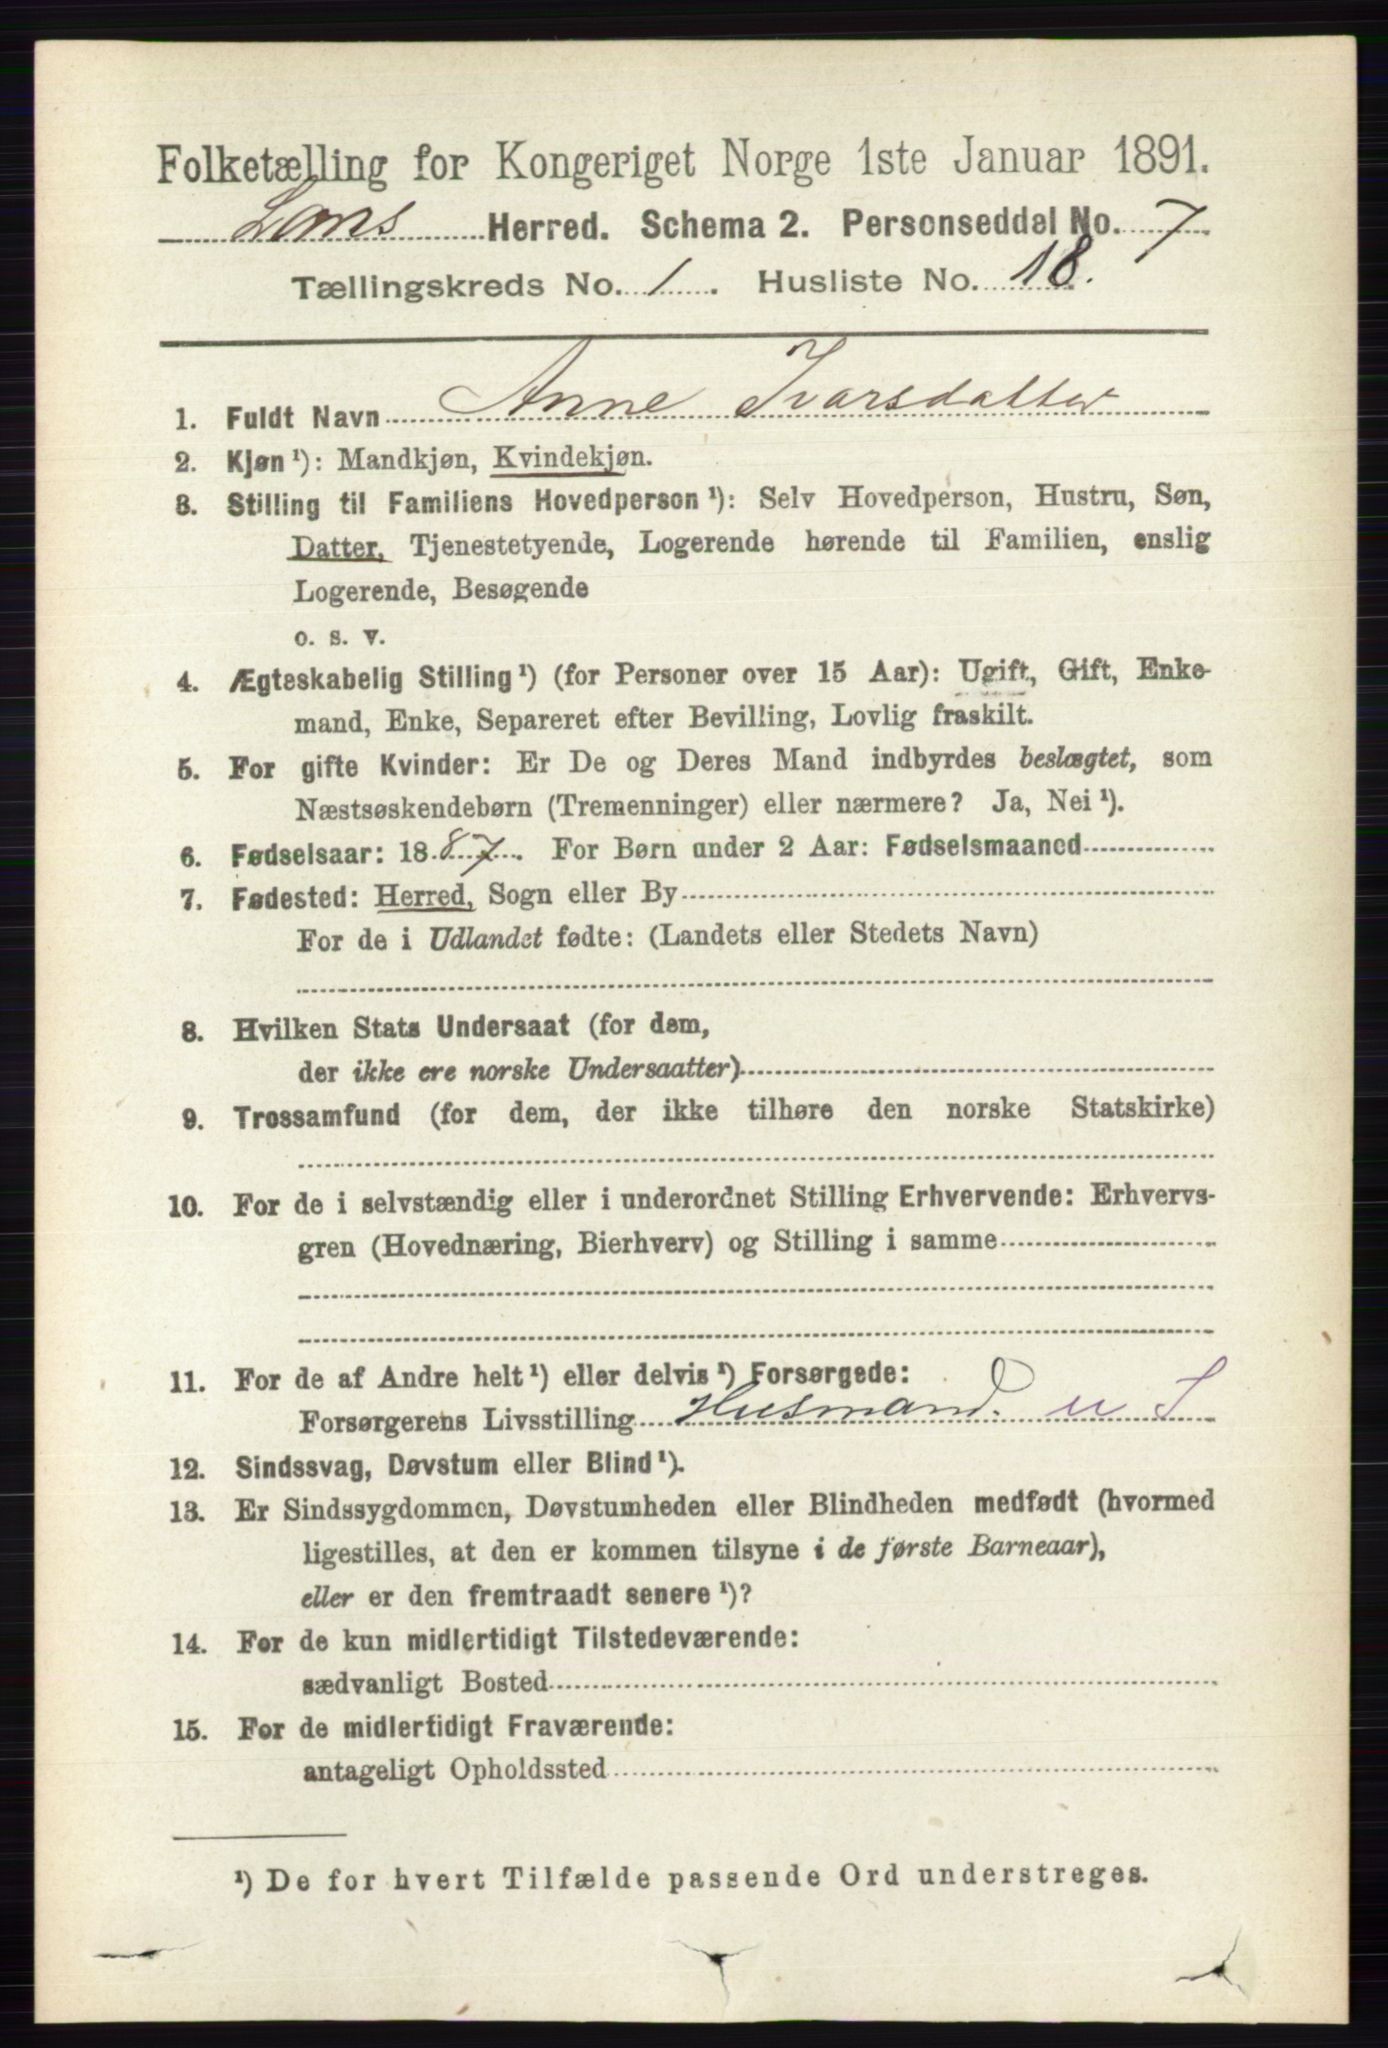 Folketælling for Kongeriget Norge 1ste Januar 1891.
Loms Herred. Schema 2. Personseddel No. 7
Tællingskreds No. 1. Husliste No. 18.
1. Fuldt Navn Anne Ivarsdatter
2. Kjøn ¹): Mandkjøn, Kvindekjøn.
3. Stilling til Familiens Hovedperson ¹): Selv Hovedperson, Hustru, Søn,
Datter, Tjenestetyende, Logerende hørende til Familien, enslig
Logerende, Besøgende
o. s. v.
4. Ægteskabelig Stilling ¹) (for Personer over 15 Aar): Ugift, Gift, Enke-
mand, Enke, Separeret efter Bevilling, Lovlig fraskilt.
5. For gifte Kvinder: Er De og Deres Mand indbyrdes beslægtet, som
Næstsøskendebørn (Tremenninger) eller nærmere? Ja, Nei ¹).
6. Fødselsaar: 1887. For Børn under 2 Aar: Fødselsmaaned
7. Fødested: Herred, Sogn eller By
For de i Udlandet fødte: (Landets eller Stedets Navn)
8. Hvilken Stats Undersaat (for dem,
der ikke ere norske Undersaatter)
9. Trossamfund (for dem, der ikke tilhøre den norske Statskirke)
10. For de i selvstændig eller i underordnet Stilling Erhvervende: Erhvervs-
gren (Hovednæring, Bierhverv) og Stilling i samme
11. For de af Andre helt ¹) eller delvis ¹) Forsørgede:
Forsørgerens Livsstilling Husmand. u J
12. Sindssvag, Døvstum eller Blind ¹).
13. Er Sindssygdommen, Døvstumheden eller Blindheden medfødt (hvormed
ligestilles, at den er kommen tilsyne i de første Barneaar),
eller er den fremtraadt senere ¹)?
14. For de kun midlertidigt Tilstedeværende:
sædvanligt Bosted
15. For de midlertidigt Fraværende:
antageligt Opholdssted
¹) De for hvert Tilfælde passende Ord understreges.